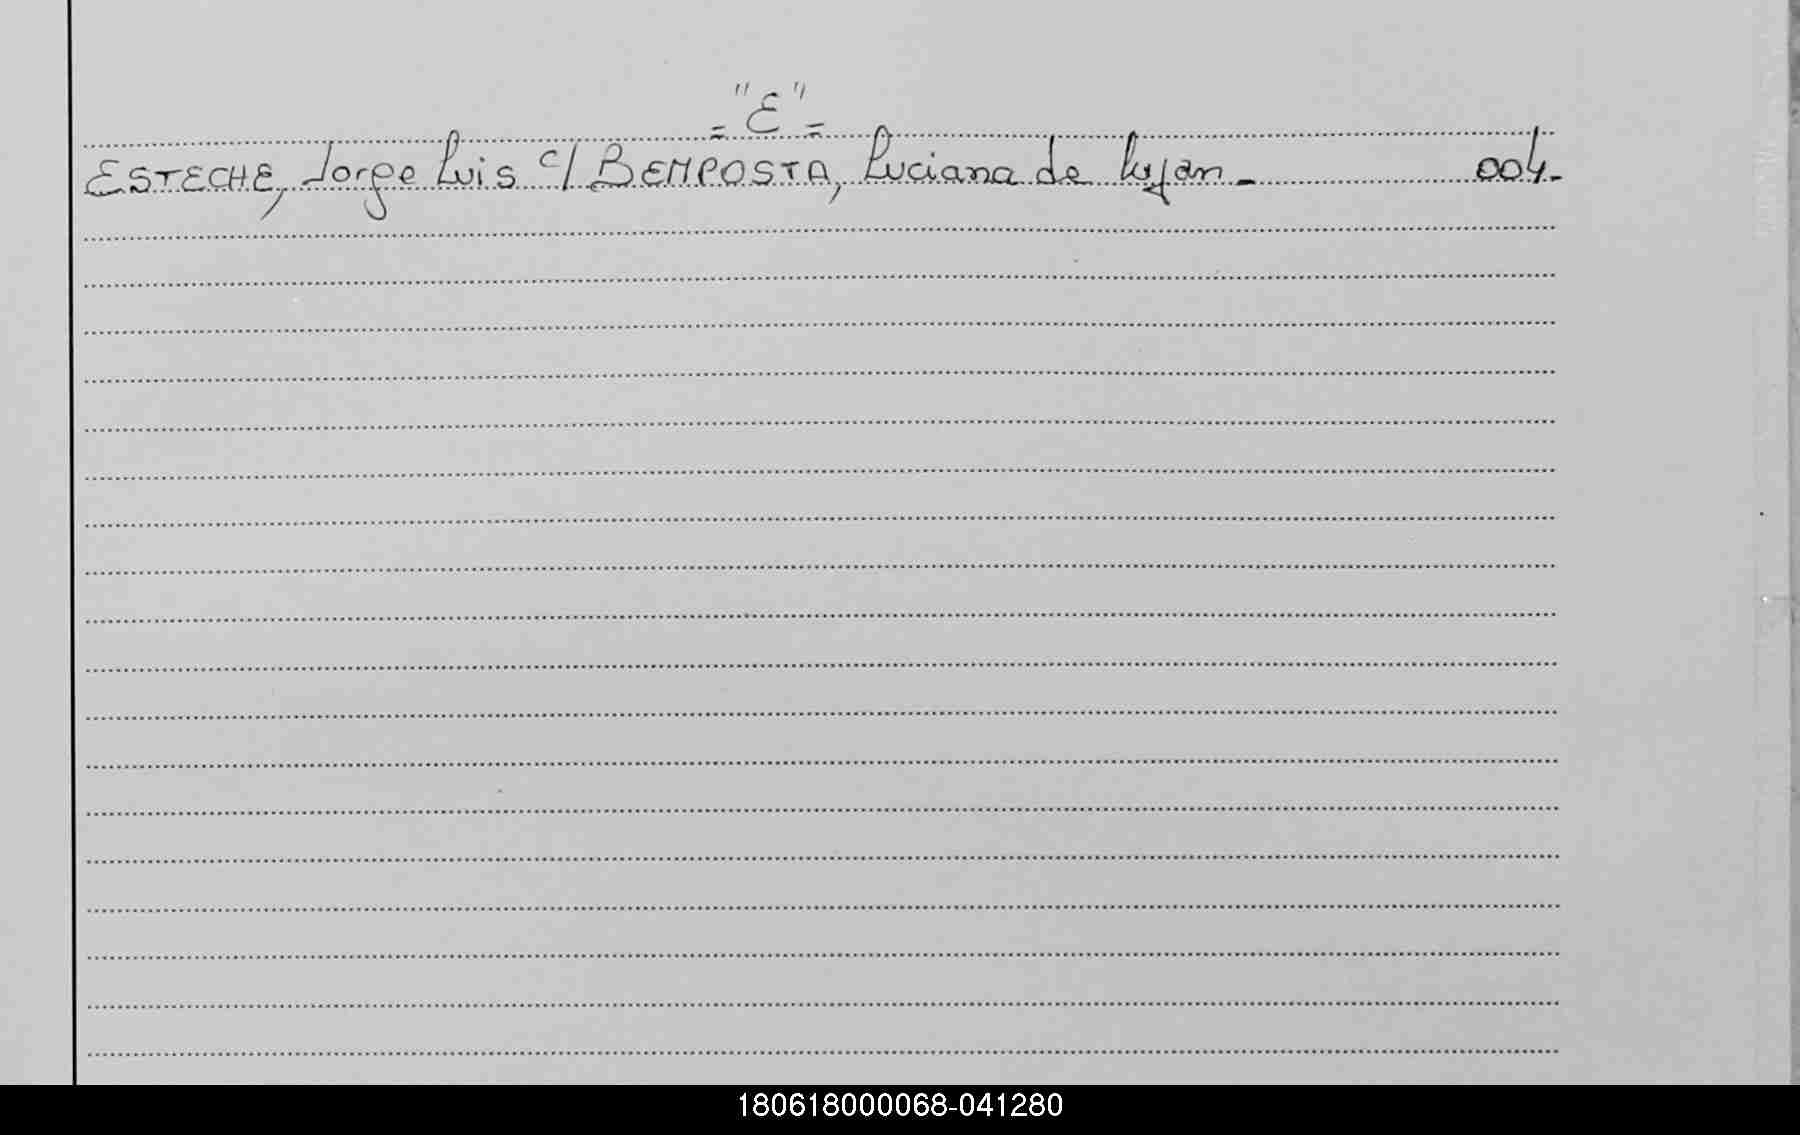 = "E" =
ESTECHE, Jorge Luis c/ BEMPOSTA, Luciana de Lujan - 004.-
180618000068-041280